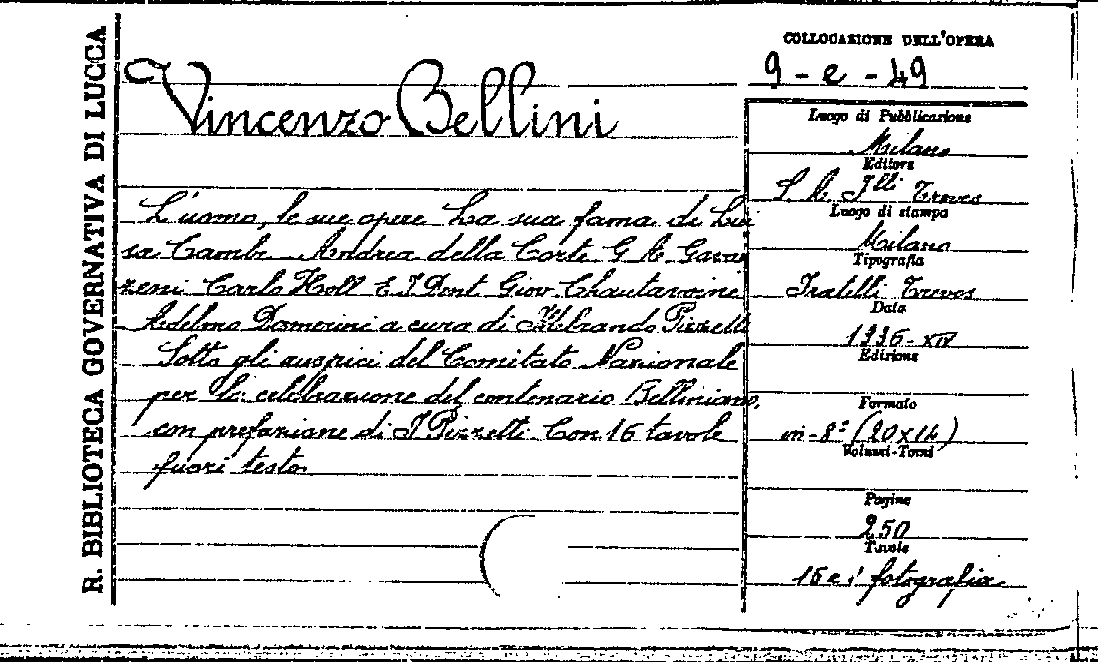 R. BIBLIOTECA GOVERNATIVA DI LUCCA
Vincenzo Bellini
L'uomo, le sue opere La sua fama di Lui
sa Cambi Andrea della Corte G A Gavaz
zeni Carlo Holl E J Dent Giov. Chantavoine
Adelmo Damerini a cura di Ildebrando Pizzetti
Sotto gli auspici del Comitato Nazionale
per le celebrazione del centenario Belliniano,
con prefazione di I Pizzetti Con 16 tavole
fuori testo
COLLOCAZIONE DELL'OPERA
9 - e - 49
Luogo di Pubblicazione
Milano
Editore
S. A. Flli Treves
Luogo di stampa
Milano
Tipografia
Fratelli Treves
Data
1936-XIV
Edizione
Formato
in-8° (20x14)
Volumi-Tomi
Pagine
250
Tavole
16 e 1 fotografia